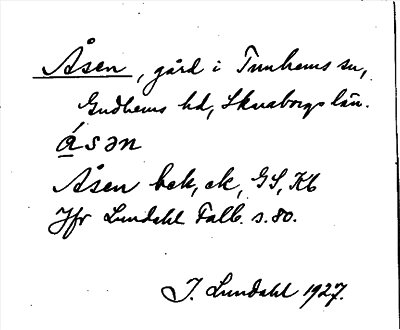 Åsen, gård i Tunhems sn,
Gudhems hd, Skaraborgs län.
ásən
Åsen bek, ek, GS, Kb
Jfr Lundahl Falb. s. 80.
J. Lundahl 1927.